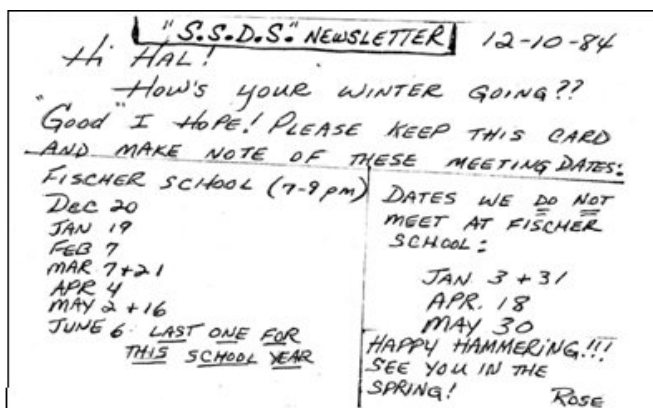 "S.S.D.S." NEWSLETTER 12-10-84
Hi HAL!
HOW'S YOUR WINTER GOING??
"Good" I HOPE! PLEASE KEEP THIS CARD
AND MAKE NOTE OF THESE MEETING DATES:
FISCHER SCHOOL (7-9 PM)
DEC 20
JAN 19
FEB 7
MAR 7+21
APR 4
MAY 2 +16
JUNE 6 LAST ONE FOR
THIS SCHOOL YEAR
DATES WE DO NOT
MEET AT FISCHER
SCHOOL:
JAN 3 + 31
APR. 18
MAY 30
HAPPY HAMMERING!!!
SEE YOU IN THE
SPRING!
ROSE